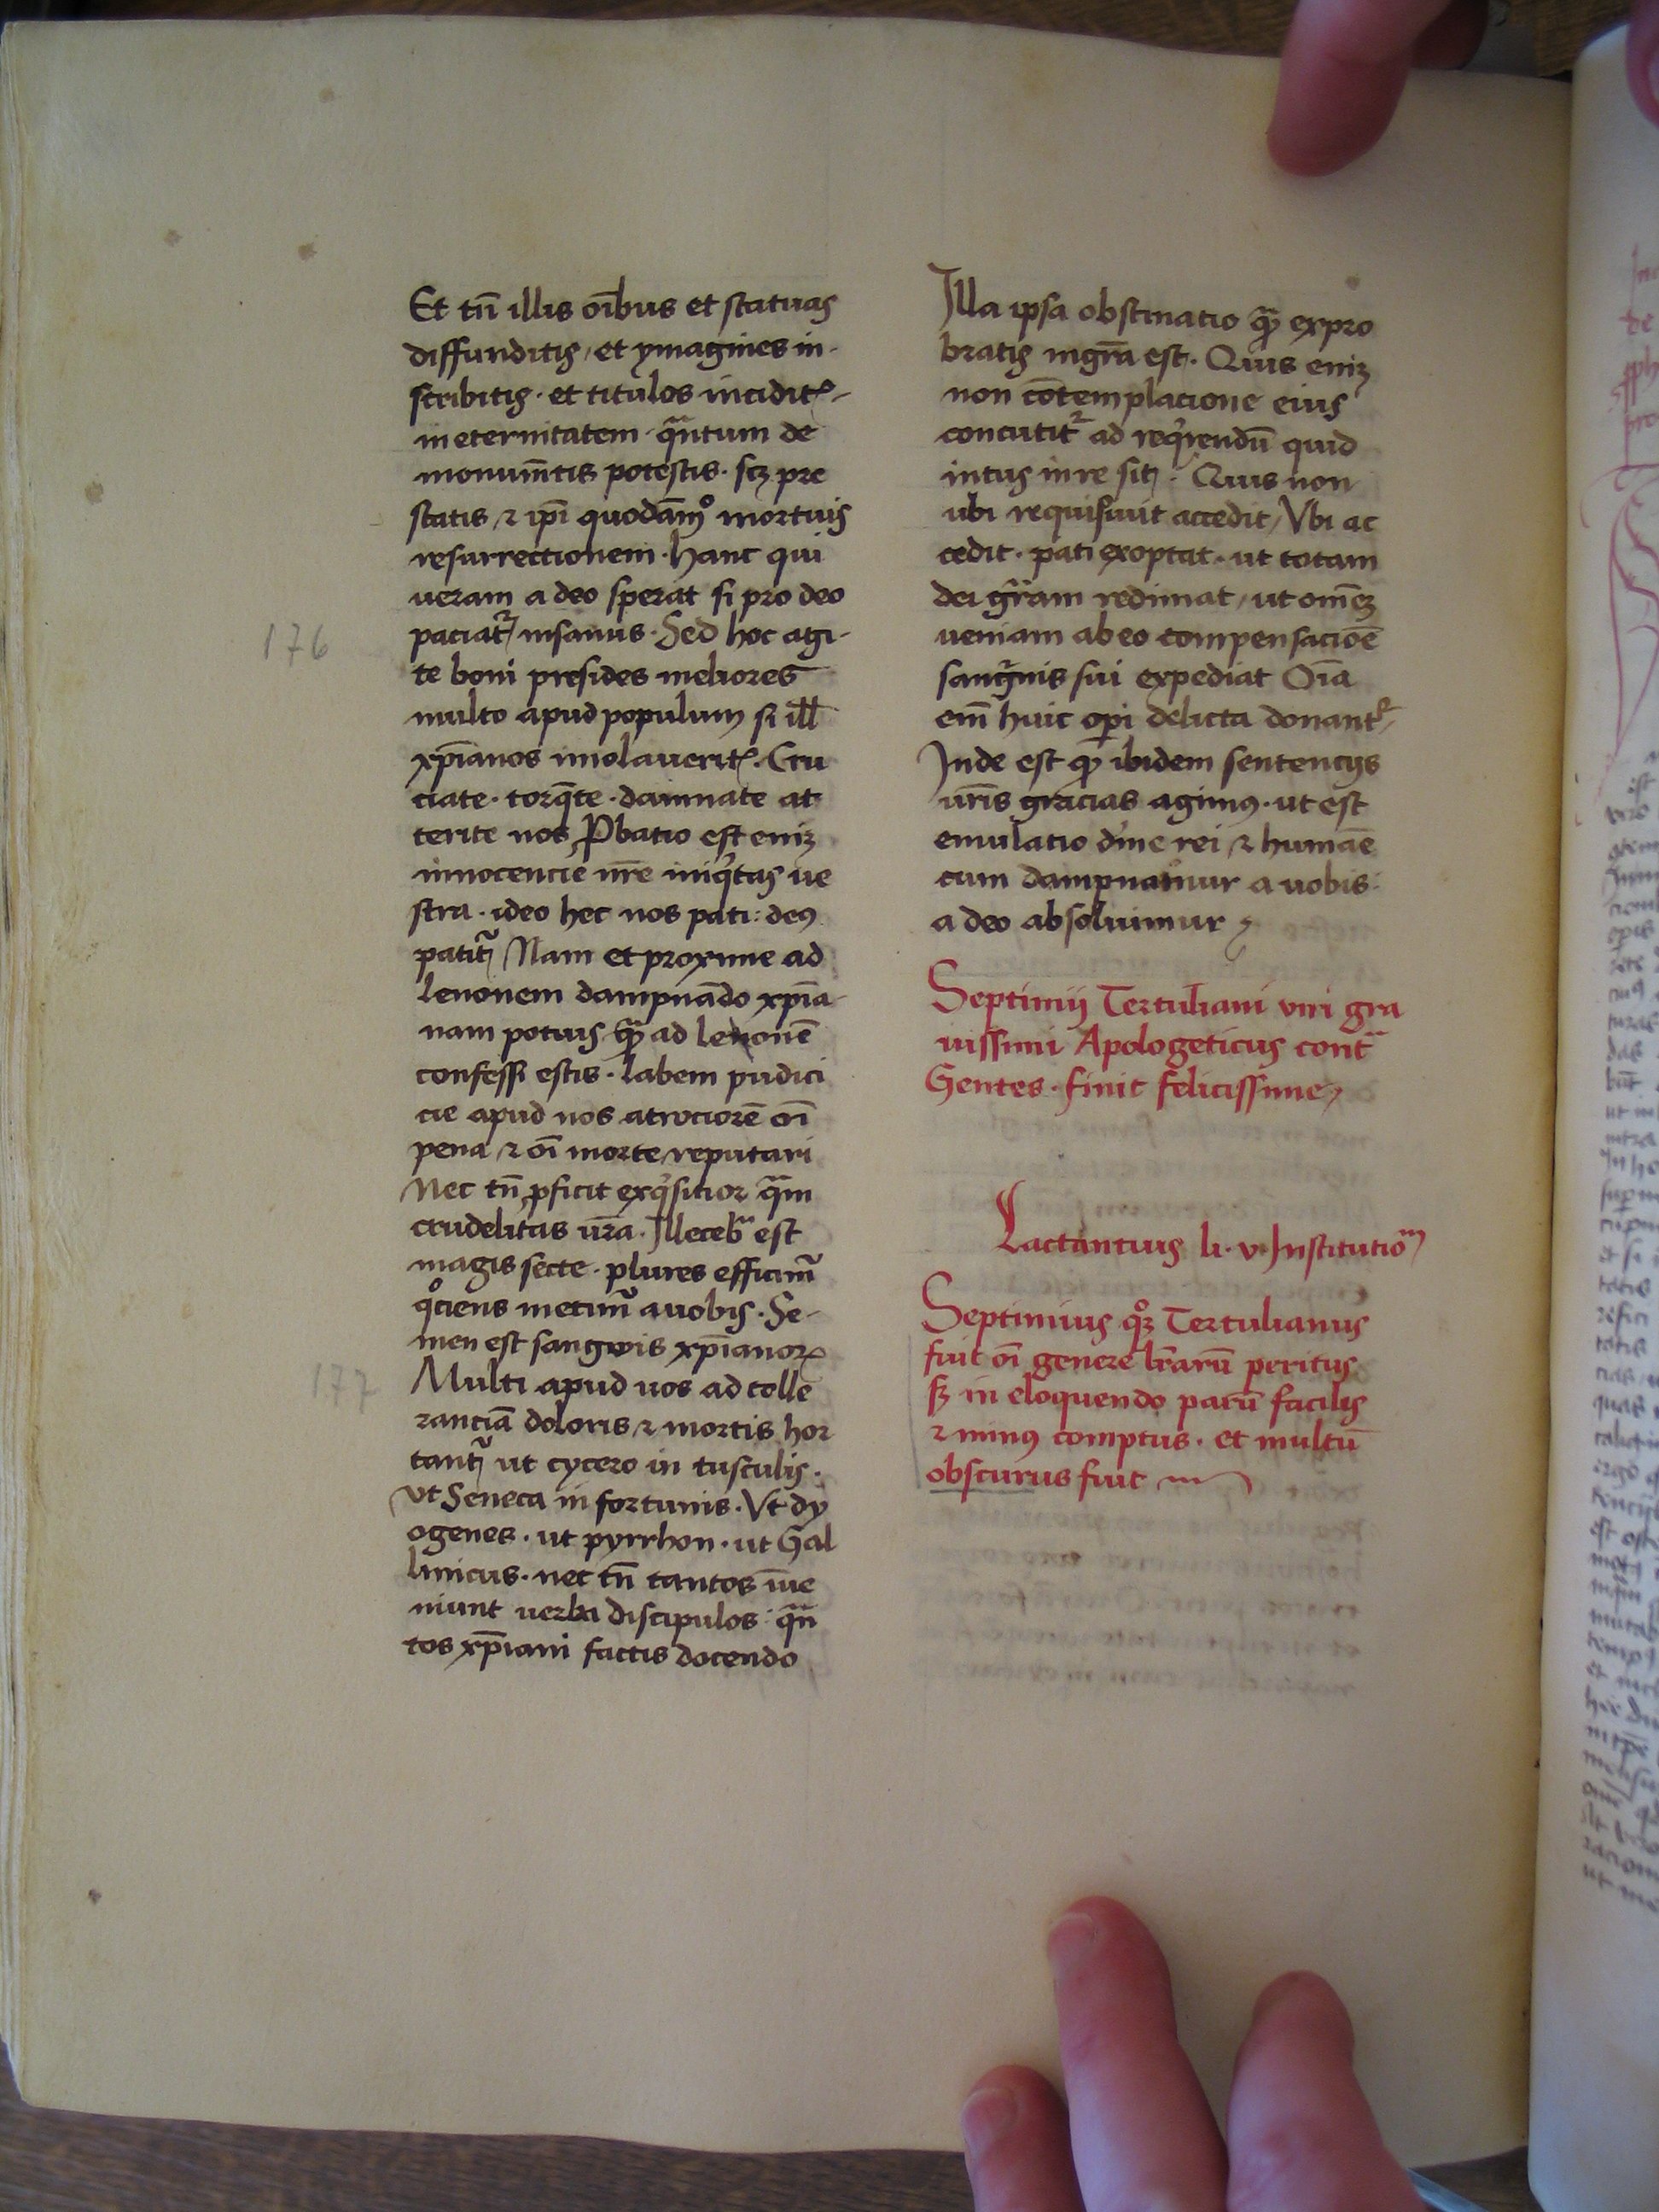 Et tn̄ illis oībus et statuas
diffunditis / et ymagines in-
scribitis · et titulos inciditꝭ -
in eternitatem · qᷓntum de
monumētis potestis · scꝫ pre
statis / ⁊ ip̄i quodāmͦ mortuis
resurrectionem · hanc qui
veram a deo sperat si pro deo
paciatᷣ / insanus · Sed hoc agi-
176
te boni presides meliores
multo apud populum si ill̄
xp̄ianos imolaveritꝭ · Cru
ciate · torq̄te · damnate at
terite nos / ꝓbatio est eniꝫ
innocencie nr̄e iniqͥtas ve
stra · ideo hec nos pati : deꝰ
patitᷣ / Nam et proxime ad
lenonem dampnādo xp̄ia-
nam potius qᷓꝫ ad leonē
confessi estis · labem pudici
cie apud nos atrociorē oī
pena / ⁊ oī morte / reputari
Nec tn̄ ꝓficit exqͥsitior qᷓm
crudelitas vr̄a · Illecebᷓ est
magis secte · plures efficimᷣ
qͦciens metimᷣ a vobis · Se-
men est sangwis xp̄ianoꝝ
177
Multi apud vos ad tolle
ranciā doloris / ⁊ mortis hor
tantᷣ / ut cycero in tusculis ·
ut Seneca in fortunis · Vt dy
ogenes · ut pyrrhon · ut Gal
linicus · nec tn̄ tantos īve
niunt verba discipulos · qᷓn
tos xp̄iani factis docendo
Illa ipsa obstinatio qᷓꝫ expro
bratis mgr̄a est · Quis eniꝫ
non cōtemplacione eius
concutitᷣ ad reqͥrendū quid
intus in re sit / · Quis non
ubi requisivit accedit / Vbi ac
cedit · pati exoptat · ut totam
dei gr̄am redimat / ut omēꝫ
veniam ab eo compensaciōe
sangͥnis sui expediat Oīa
em̄ huic opi delicta donantᷣ /
Inde est qꝫ ibidem sentencijs
vr̄is gracias agimꝰ · ut est
emulatio dīne rei ⁊ humāe
cum dampnamur a vobis :
a deo absolvimur
Septimij Tertuliani viri gra
vissimi Apologeticus contᷓ
Gentes · finit felicissime /
Lactantius li · v · Institutioᷠ
Septimius qͦꝫ Tertulianus
fuit oī genere lr̄arū peritus
sꝫ in eloquendo parū facilis
⁊ minꝰ comptus · et multū
obscurus fuit